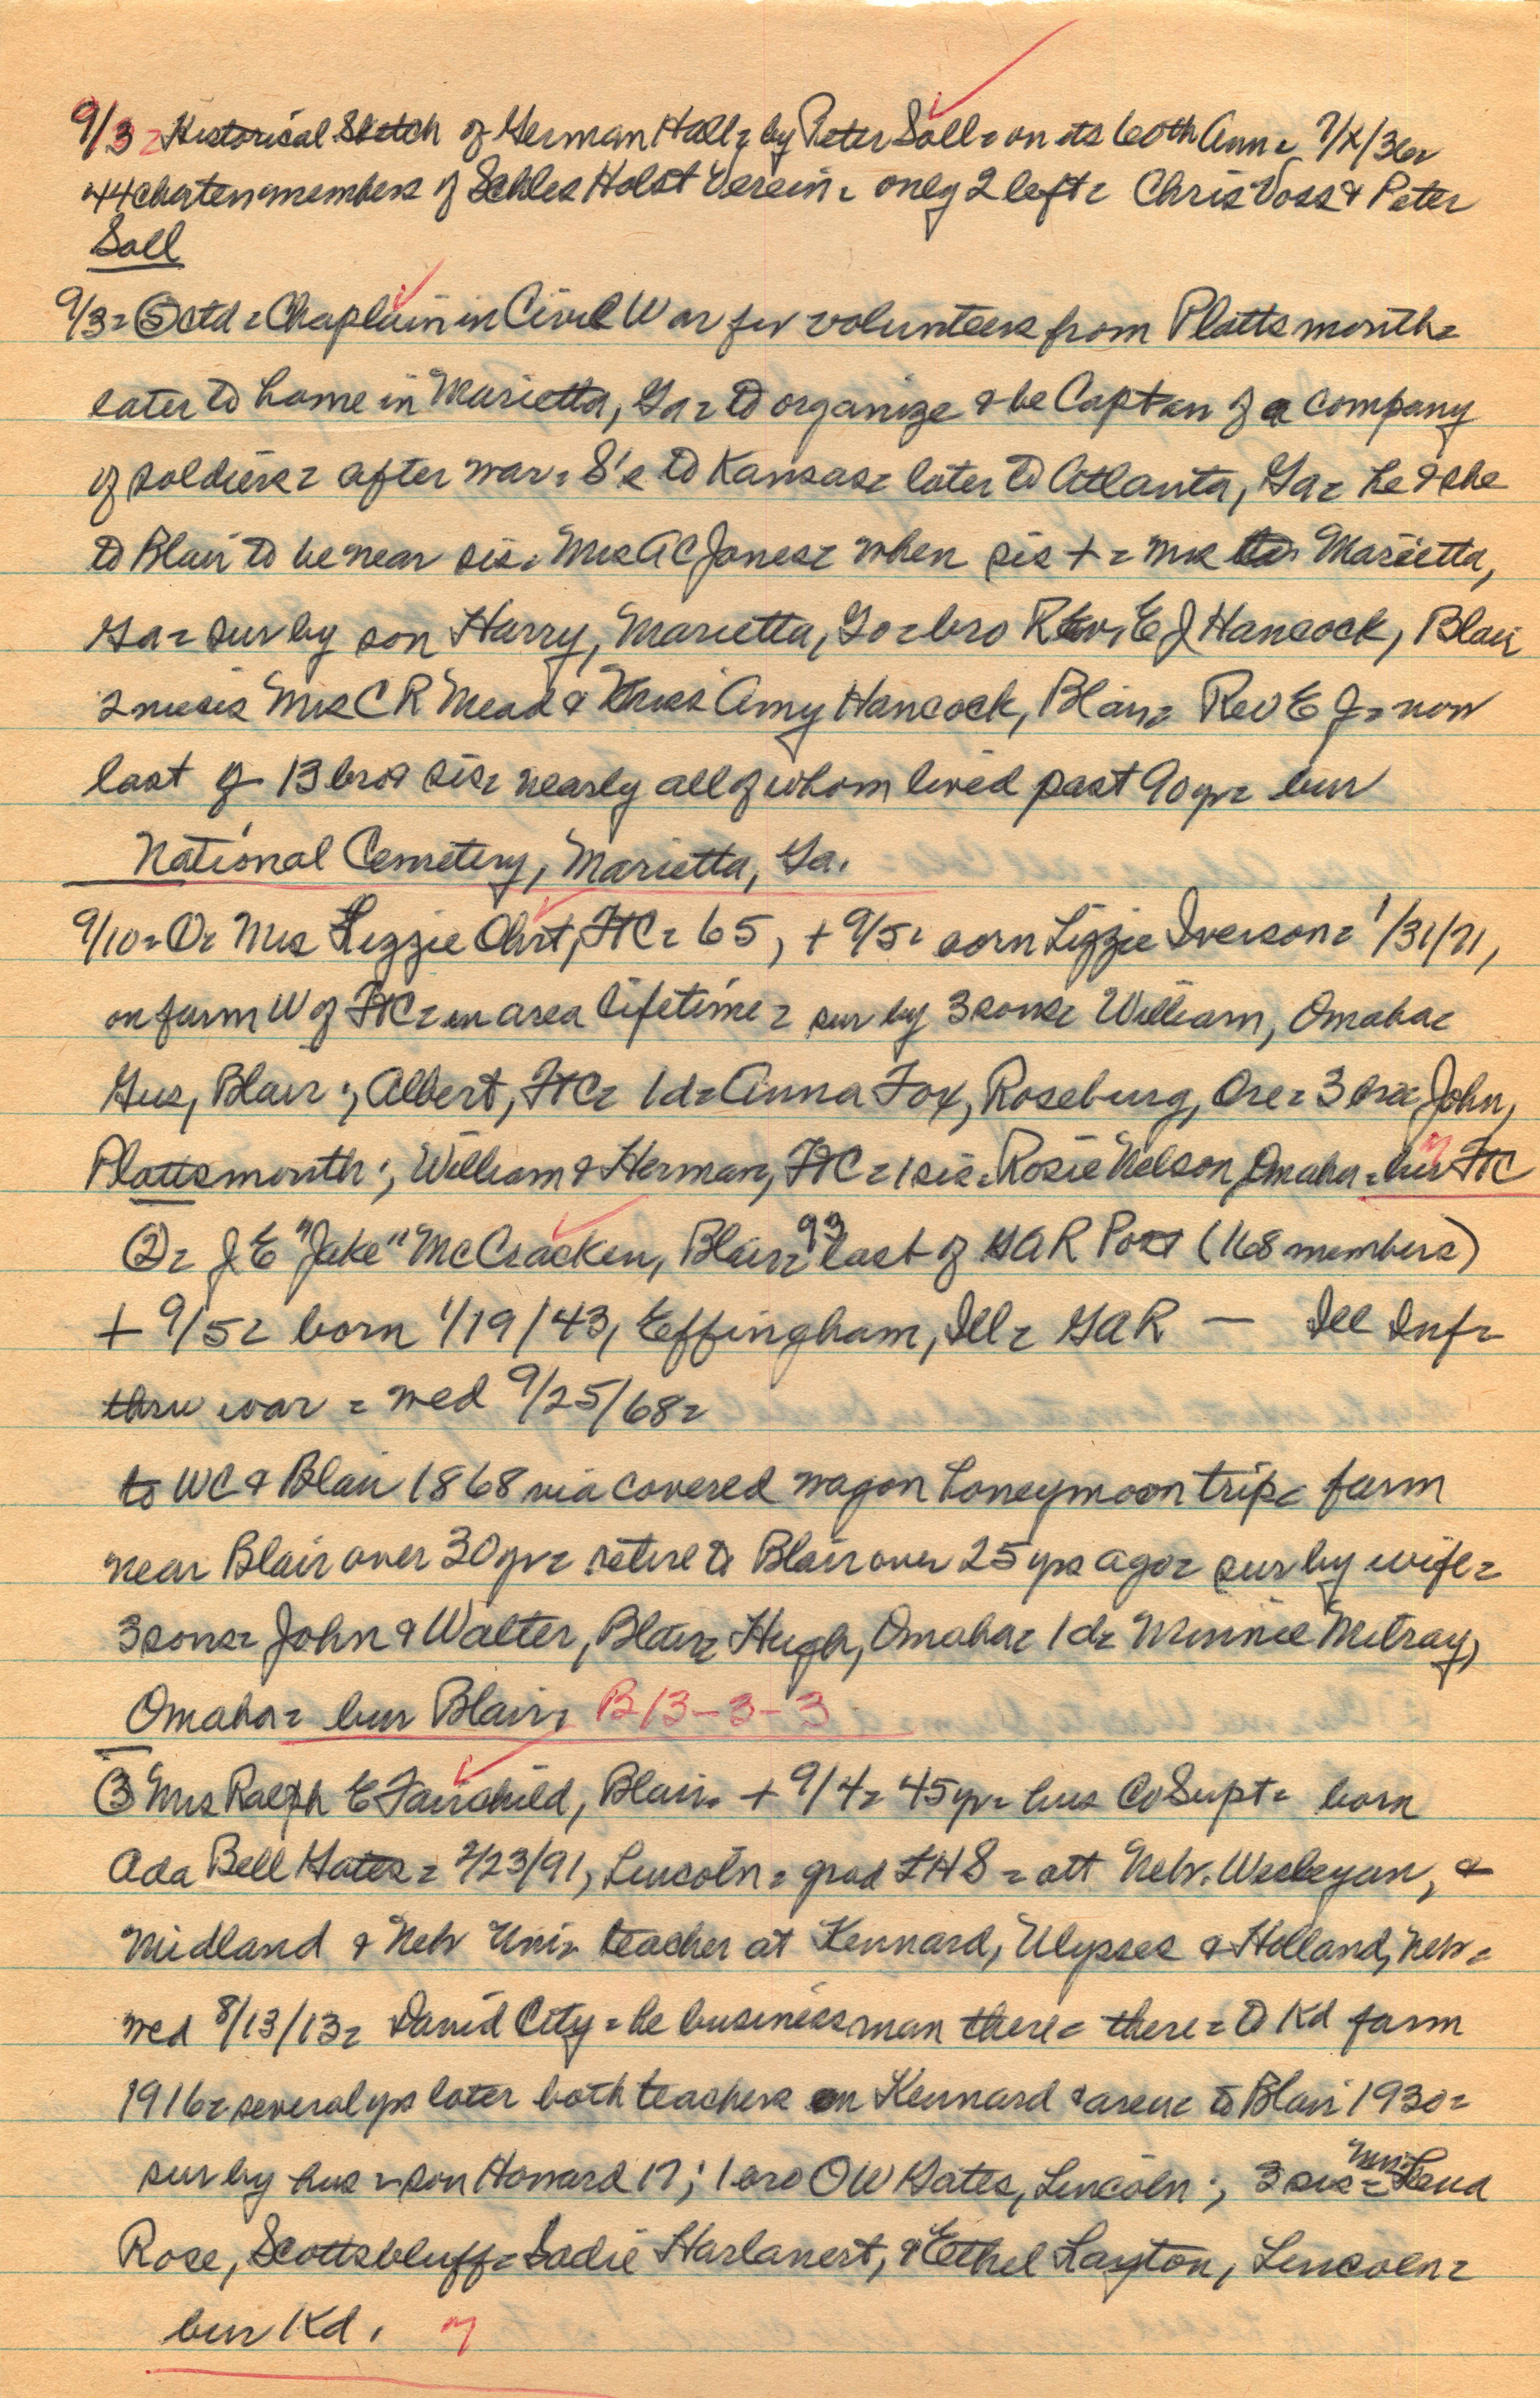 9/3= Historical Sketch of German Hall= by Peter Soll= on its 60th Ann=
44 charter members of Schles Holst Verein= only 2 left= Chris Voss & Peter
Soll
9/3= ⑤ ctd= Chaplain in Civil War for volunteers from Plattsmouth=
later to home in Marietta, Ga= to organize & be Captan of a company
of soldiers= after war= S's to Kansas= later to Atlanta, Ga= he & she
to Blair to be near sis= Mrs A C Jones= when sis += Marietta,
Ga= sur by son Harry, Marietta, Ga= bro Rev. E J Hancock, Blair
2 nieces Mrs C R Mead & Amy Hancock, Blair= Rev E J= now
last of 13 bro & sis= nearly all of whom lived past 90 yr= bur
National Cemetery, Marietta, Ga.
9/10= O= Mrs Lizzie Ohrt, FtC= 65, + 9/5= born Lizzie Iverson= 1/31/71,
on farm W of FtC= in area lifetime= sur by 3 sons= William, Omaha=
Gus, Blair; Albert, FtC= 1d= Anna Fox, Roseburg, Ore= 3 bro= John,
Plattsmouth; William & Herman, FtC= 1 sis= Rosie Nelson, Omaha= bur FtC
②= J E "Jake" McCracken, Blair= 93 last of GAR Post (168 members)
+ 9/5= born 1/19/43, Effingham, Ill= GAR — Ill Inf=
thru war= wed 9/25/68=
to WC & Blair 1868 via covered wagon honeymoon trip= farm
near Blair over 30 yr= retire to Blair over 25 yrs ago= sur by wife=
3 sons= John & Walter, Blair= Hugh, Omaha= 1d= Minnie
Omaha= bur Blair= B13-3-3
③ Mrs Ralph E Fairchild, Blair= + 9/4= 45 yr= hus Co Supt= born
Ada Bell Gates= 2/23/91, Lincoln= grad LHS= att Nebr. Wesleyan, &
Midland & Neb Uni= teacher at Kennard, Ulysses & Holland, Neb=
wed 8/13/13= David City= he business man there= there= to Kd farm
1916= several yrs later both teachers in Kennard & area= to Blair 1930=
sur by hus & son Howard 17; 1 bro O W Gates, Lincoln; 3 sis= Mrs Lena
Rose, Scottsbluff= Sadie Harlanert, & Ethel Layton, Lincoln=
bur Kd. m